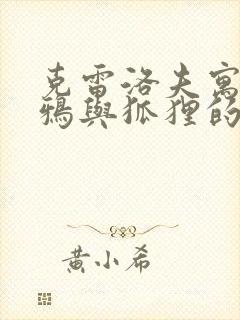 克雷洛夫寓
鴉與狐狸的
黃小希